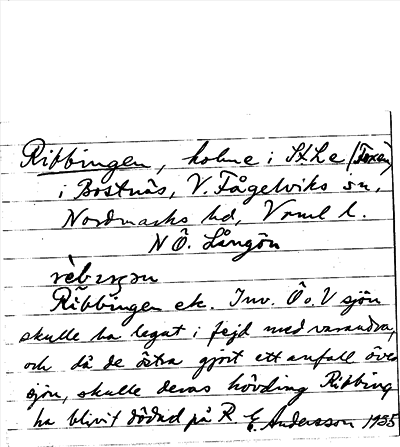 Ribbingen, holme i St Le (Foxen)
i Bostnäs, V. Fågelviks sn,
Nordmarks hd, Vrml l.
N Ö. Långön
Ribbingen ek. Inv. Ö o. V sjön
skulle ha legat i fejd med varandra,
och då de östra gjort ett anfall över
sjön, skulle deras hövding Ribbing
ha blivit dödad på R. E. Andersson 1935